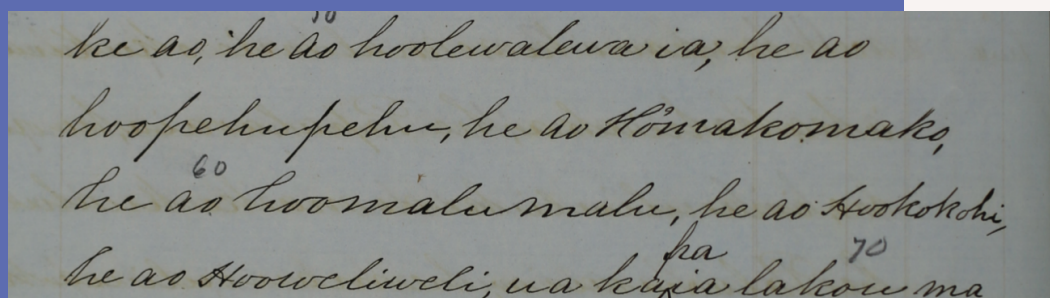 ke ao, he ao hoolewalewa ia, he ao
hoopehupehu, he ao Hōmakomako,
60
he ao hoomalumalu, he ao Hookokohi,
pa 70
he ao Hooweliweli, ua kaia lakou ma